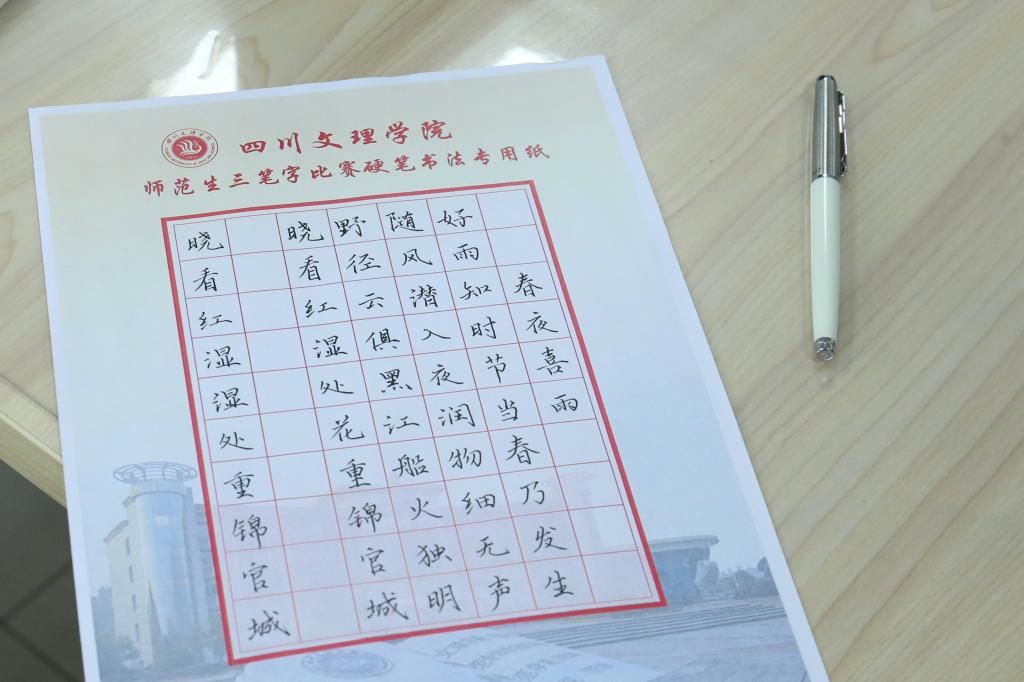 四川文理学院
师范生三笔字比赛硬笔书法专用纸
春夜喜雨
好雨知时节当春乃发生
随风潜入夜润物细无声
野径云俱黑江船火独明
晓看红湿处花重锦官城
晓看红湿湿处重锦官城